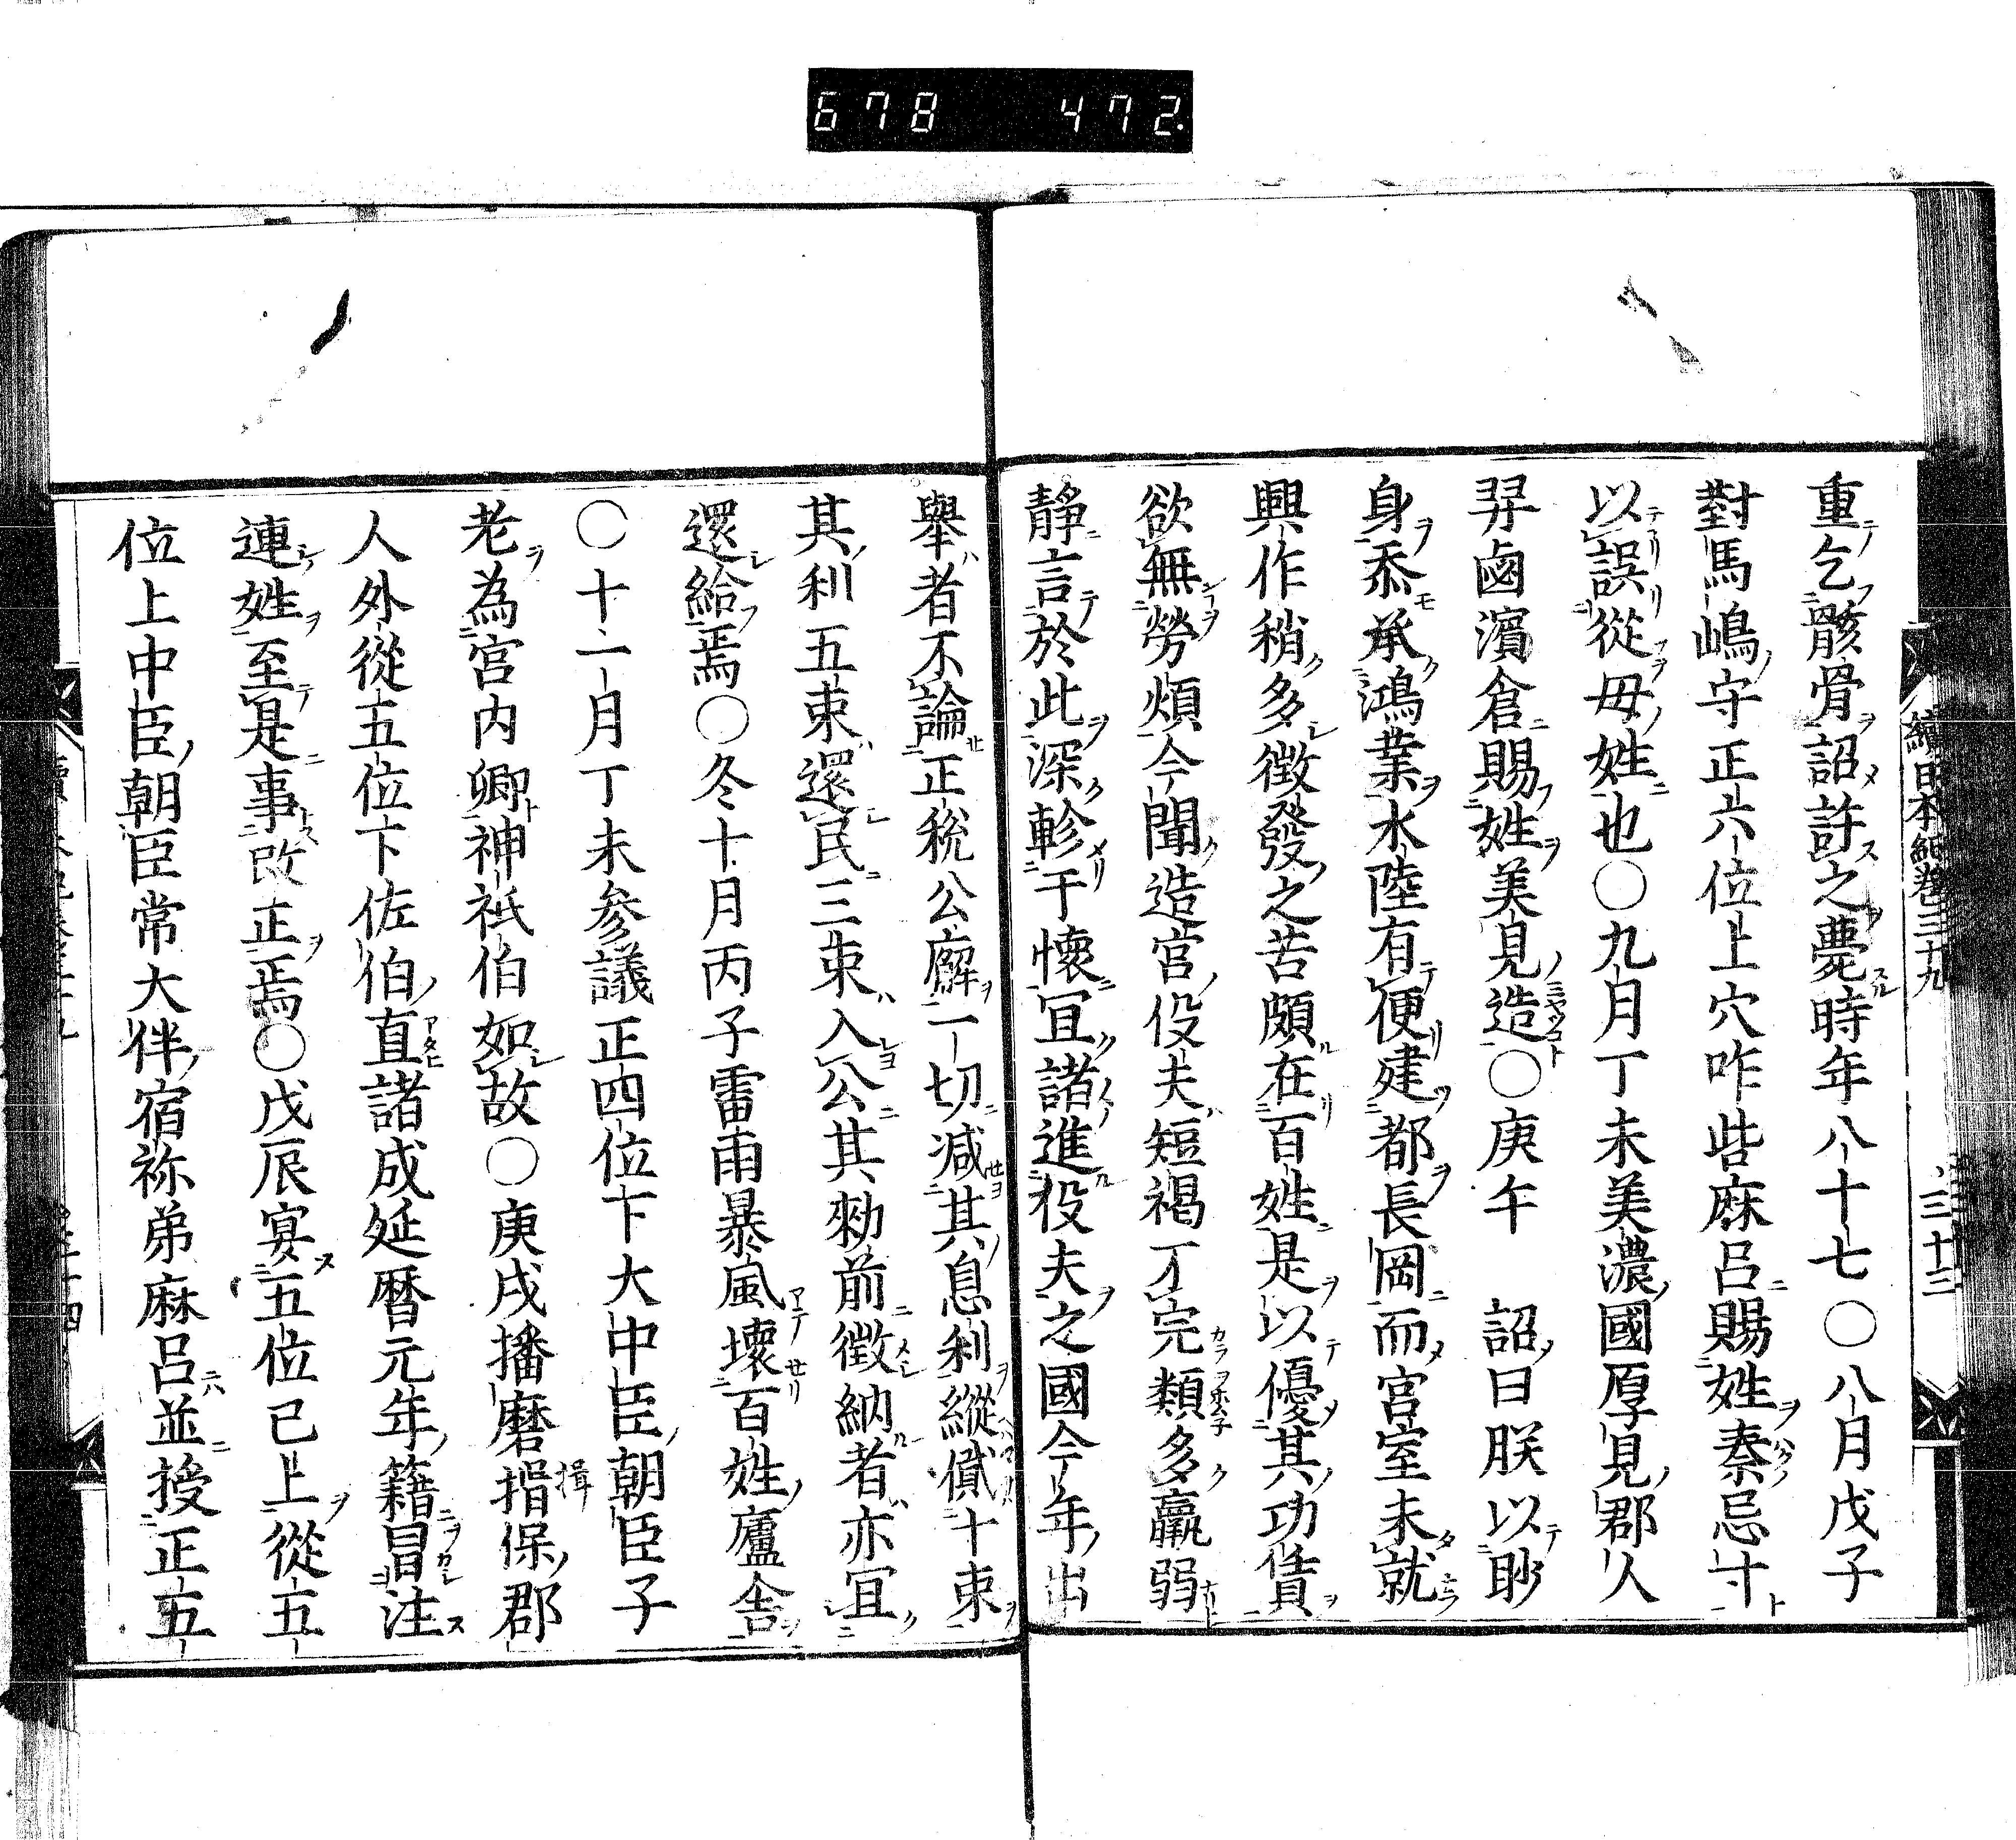 678 472.
續日本紀卷三十九
三十三
重乞骸骨詔許之薨時年八十七○八月戊子
對馬嶋守正六位上穴咋呰麻呂賜姓秦忌寸
以誤從母姓也○九月丁未美濃國厚見郡人
羿鹵濱倉賜姓美見造○庚午 詔曰朕以眇
身忝承鴻業水陸有便建都長岡而宮室未就
興作稍多徵發之苦頗在百姓是以優其功貨
欲無勞煩今聞造宮役夫短褐不完類多羸弱
靜言於此深軫于懷宜諸進役夫之國今年出
擧者不論正稅公廨一切減其息利縱貸十束
其利五束還民三束入公其勑前徵納者亦宜
還給焉○冬十月丙子雷雨暴風壞百姓廬舎
○十二月丁未參議正四位下大中臣朝臣子
老為宮内卿神祇伯如故○庚戌播磨揖保郡
人外從五位下佐伯直諸成延暦元年籍冒注
連姓至是事改正焉○戊辰宴五位已上從五
位上中臣朝臣常大伴宿祢弟麻呂並授正五